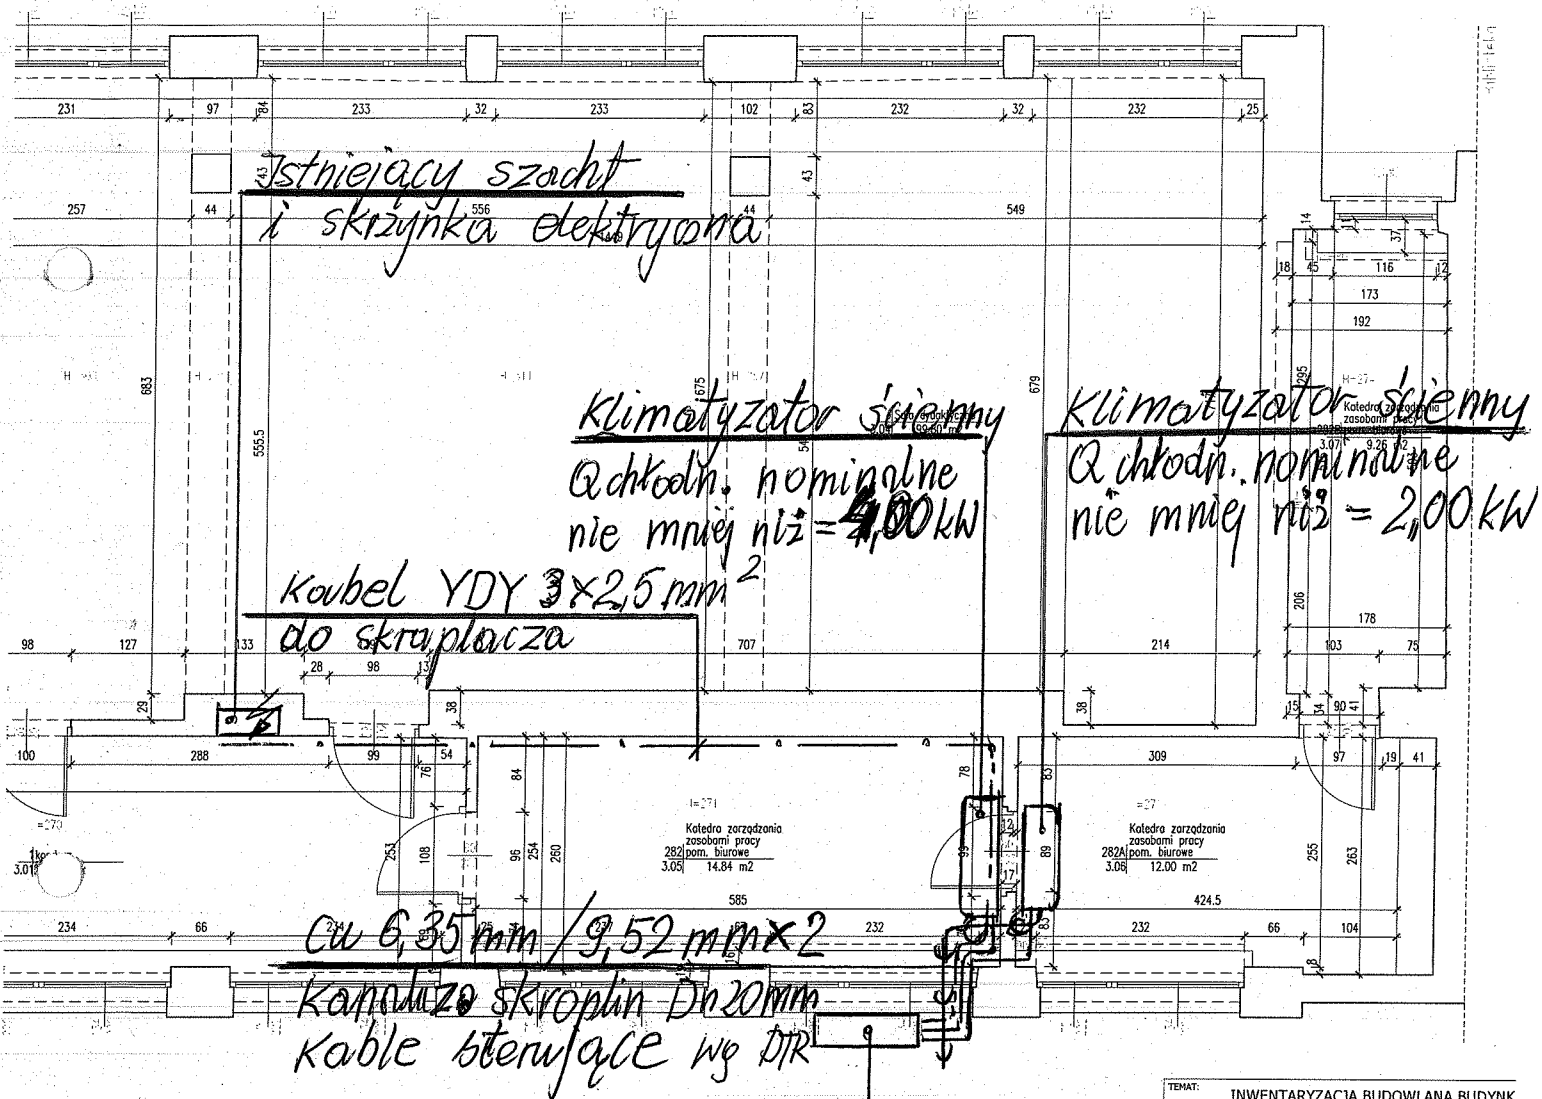 231 97 84 233 32 233 102 83 232 32 232 25
Istniejący szacht
43
43
257 44 556 44 549
i skrzynka elektryczna
1449
14 11 37
18 45 116 12
173
192
683 675 679 295
555.5
Klimatyzator ścienny
Q chłodn. nominalne
nie mniej niż = 4,00 kW
Klimatyzator ścienny
Q chłodn. nominalne
nie mniej niż = 2,00 kW
Katedra zarządzania
zasobami pracy
3.07 9.26 m2
Kabel YDY 3x2,5 mm2
do skraplacza
206
178
98 127 133 707 214 103 75
28 98 13
29 38 38 15 34 90 41
100 288 99 54 309 97 19 41
76 84 78 83
253 108 96 254 260 99 12 89 255 263
17
Katedra zarządzania
zasobami pracy
282 pom. biurowe
3.05 14.84 m2
Katedra zarządzania
zasobami pracy
282A pom. biurowe
3.06 12.00 m2
3.01
585 424.5
234 66 232 83 232 66 104
Cu 6,35 mm / 9,52 mm x 2
8
Kanaliza skroplin Dn20mm
Kable sterujące wg DTR
TEMAT: INWENTARYZACJA BUDOWLANA BUDYNK